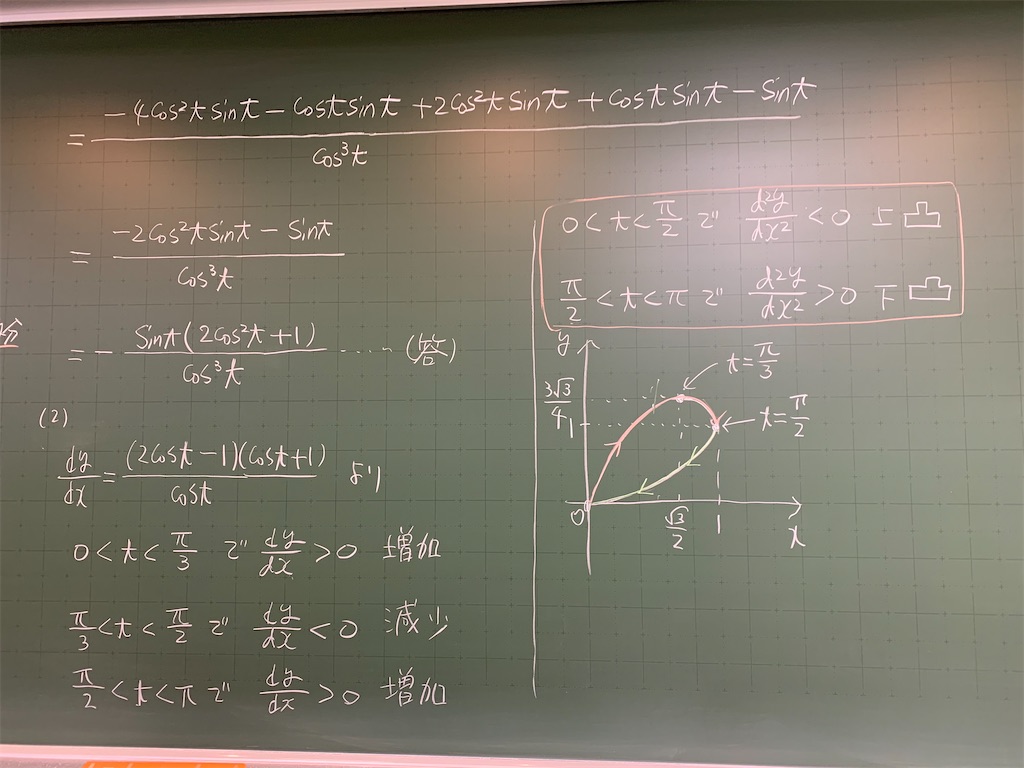 = (-4cos²t sint - cost sint + 2cos²t sint + cost sint - sint) / cos³t
= (-2cos²t sint - sint) / cos³t
= - sint(2cos²t + 1) / cos³t ‥‥ (答)
(2)
dy/dx = (2cost - 1)(cost + 1) / cost より
0 < t < π/3 で dy/dx > 0 増加
π/3 < t < π/2 で dy/dx < 0 減少
π/2 < t < π で dy/dx > 0 増加
0 < t < π/2 で d²y/dx² < 0 上凸
π/2 < t < π で d²y/dx² > 0 下凸
y
t = π/3
3√3/4
1
t = π/2
0
√3/2
1
x